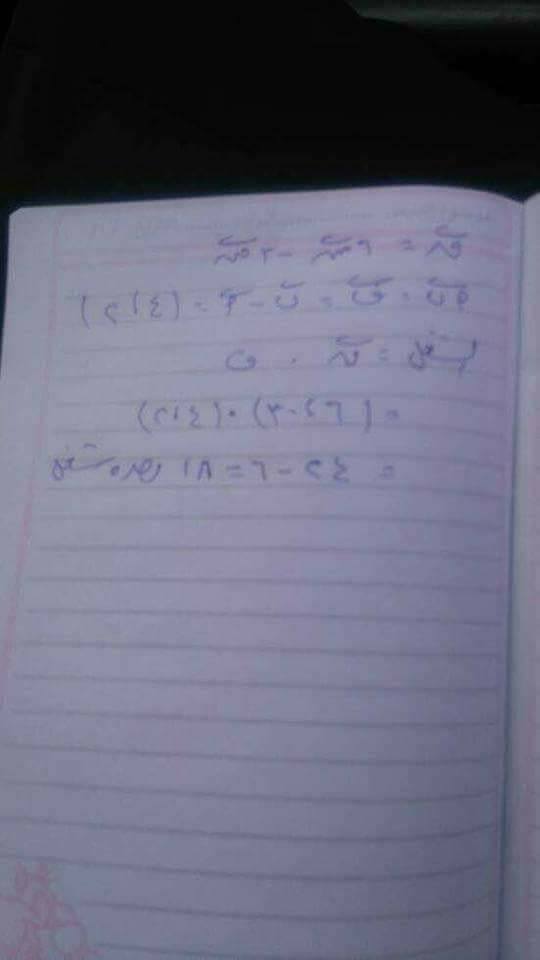 ق = ٦ س - ٣ ص
أب = ف = ب - أ = (٤ ، ٢)
الشغل = ق . ف
= (٦ ، -٣) . (٤ ، ٢)
= ٢٤ - ٦ = ١٨ وحدة شغل